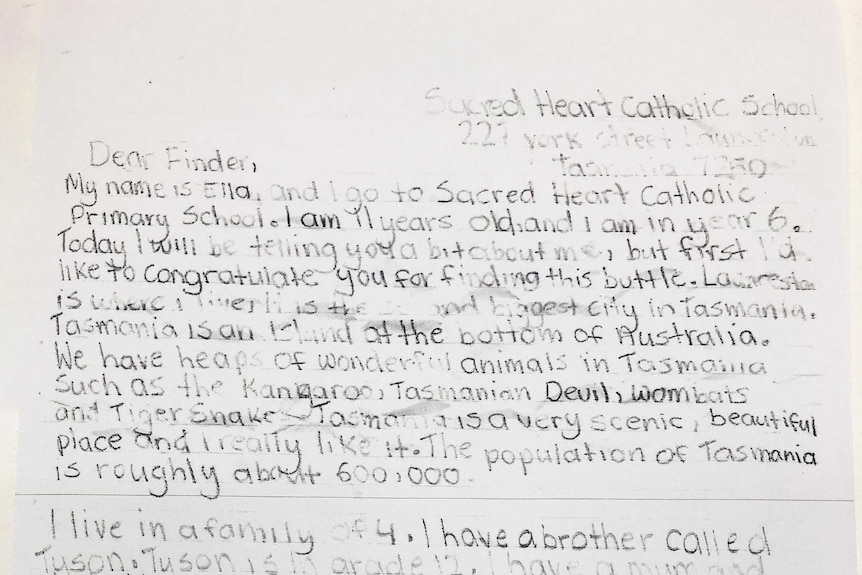 Sacred Heart Catholic School
227 York Street Launceston
Tasmania 7250
Dear Finder,
My name is Ella, and I go to Sacred Heart Catholic
Primary School. I am 11 years old, and I am in year 6.
Today I will be telling you a bit about me, but first I'd
like to congratulate you for finding this buttle. Launceston
is where I live. It is the second biggest city in Tasmania.
Tasmania is an Island at the bottom of Australia.
We have heaps of wonderful animals in Tasmania
such as the Kangaroo, Tasmanian Devil, wombats
and Tiger Snake. Tasmania is a very scenic, beautiful
place and I really like it. The population of Tasmania
is roughly about 600,000.
I live in a family of 4. I have a brother called
Tyson. Tyson is in grade 12. I have a mum and